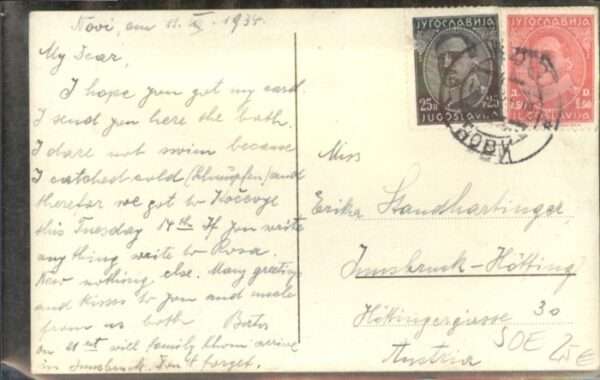 Novi, am 11. IX. 1934
My Dear,
I hope you got my card.
I send you here the bath.
I dare not swim because
I catched cold (Schnupfen) and
therefor we got to Kočevje
this Tuesday 14th If you write
any thing write to Rosa.
New nothing else. Many greetings
and kisses to you and uncle
from us both
on 21st will family Thom arrive
in Innsbruck. Don't forget.
ЈУГОСЛАВИЈА
25п 25
JUGOSLAVIJA
ЈУГОСЛАВИЈА
1.50 1.50
JUGOSLAVIJA
НОВИ
Miss
Erika Standhartinger,
Innsbruck-Hötting
Höttingergasse 30
Austria
SOE 25€